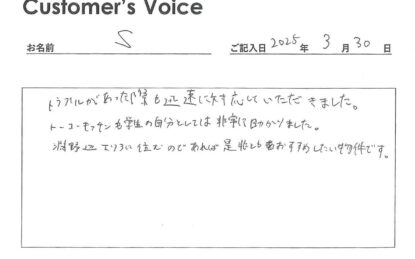 Customer's Voice
お名前 S ご記入日 2025年 3月 30日
トラブルがあった際も迅速に対応していただきました。
学生の自分としては非常に助かりました。
淵野辺エリアに住むのであれば是非ともおすすめしたい物件です。